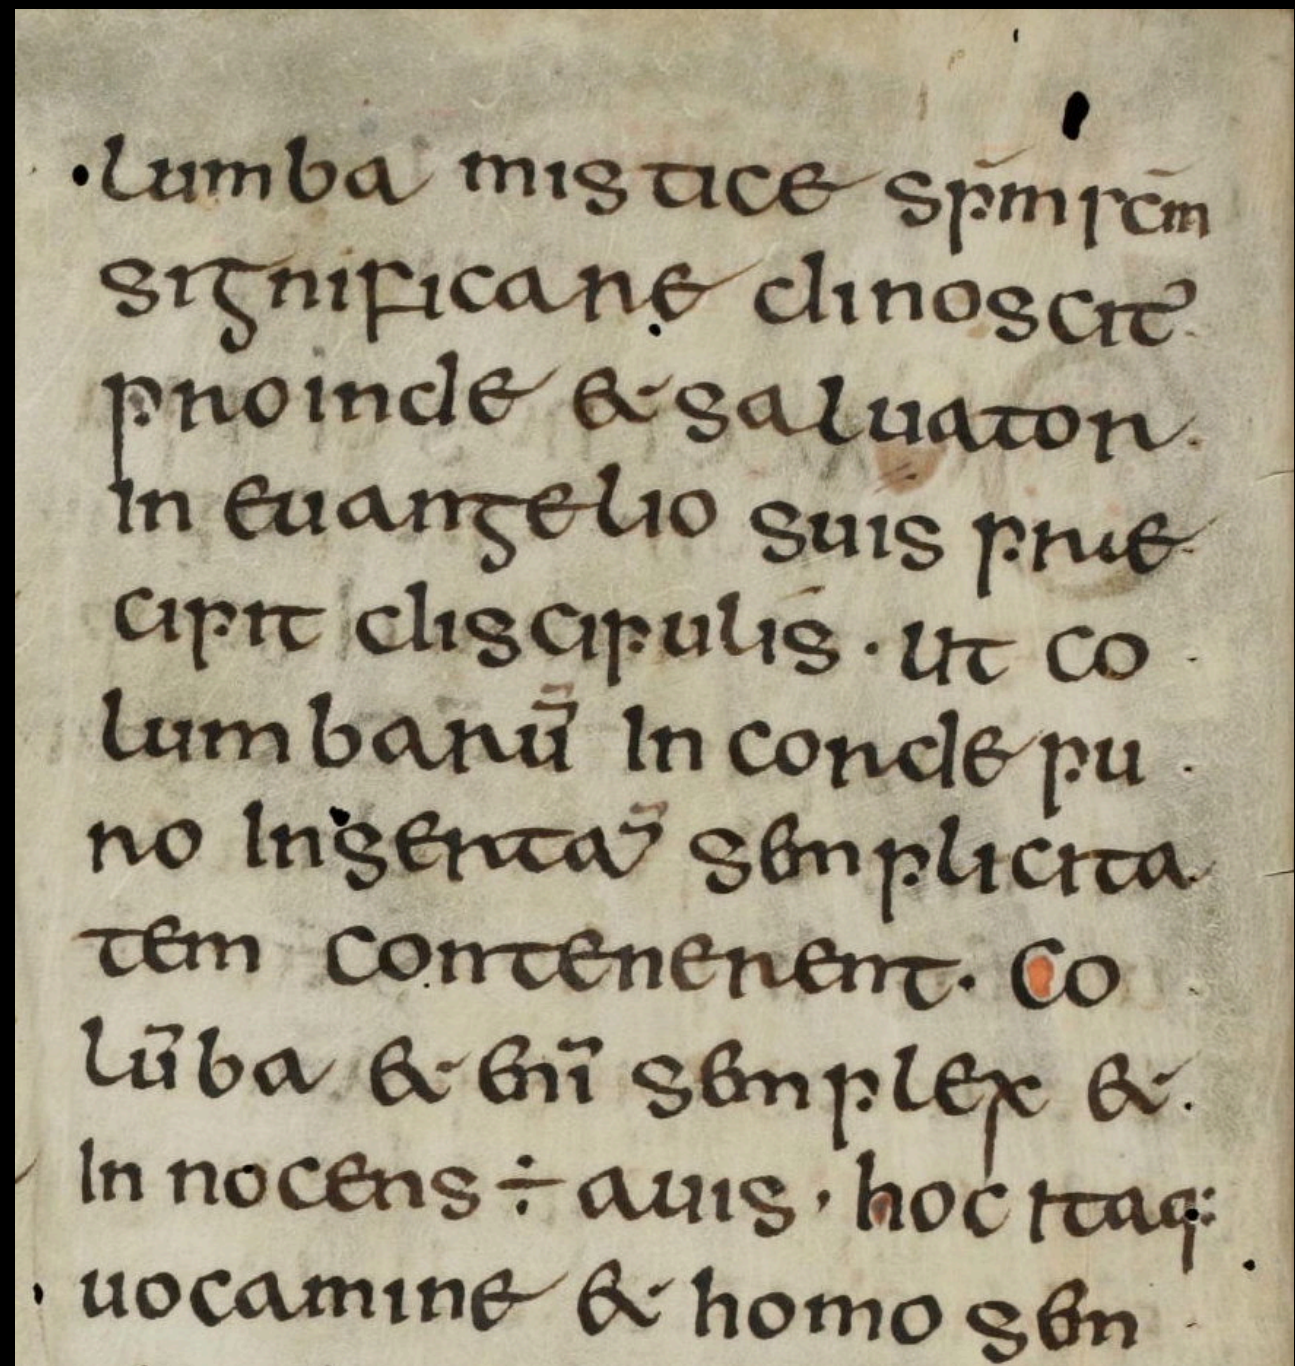 lumba mistice sp̄m scm̄
significare dinoscit᷑
proinde & saluator
in euangelio suis prae
cipit discipulis · ut co
lumbarū in corde pu
ro insertā simplicita
tem contenerent · Co
lūba & enī simplex &
innocens ÷ auis · hoc itaq:
uocamine & homo sim